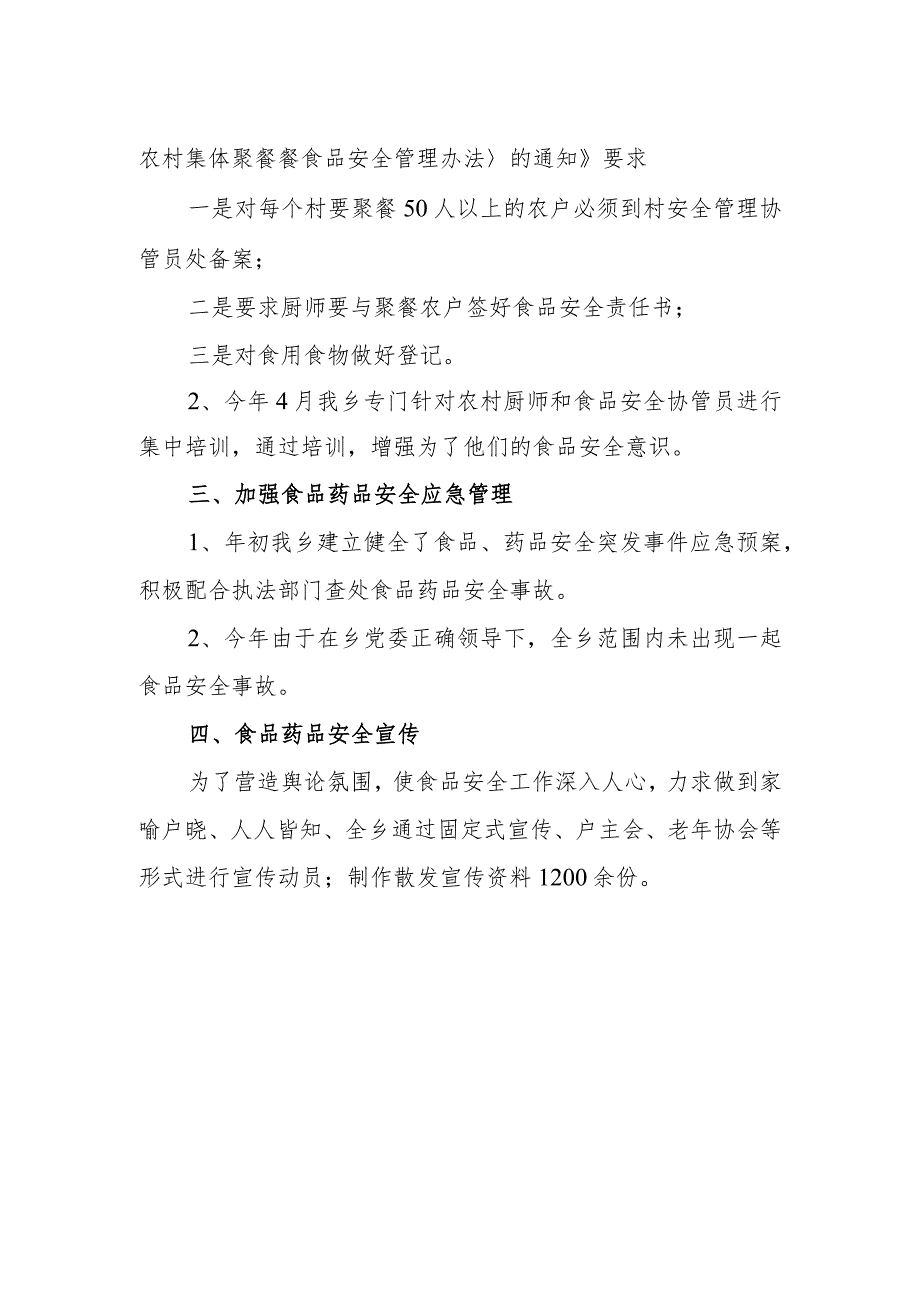 农村集体聚餐餐食品安全管理办法〉的通知》要求
一是对每个村要聚餐 50 人以上的农户必须到村安全管理协
管员处备案；
二是要求厨师要与聚餐农户签好食品安全责任书；
三是对食用食物做好登记。
2、今年 4 月我乡专门针对农村厨师和食品安全协管员进行
集中培训，通过培训，增强为了他们的食品安全意识。
三、加强食品药品安全应急管理
1、年初我乡建立健全了食品、药品安全突发事件应急预案，
积极配合执法部门查处食品药品安全事故。
2、今年由于在乡党委正确领导下，全乡范围内未出现一起
食品安全事故。
四、食品药品安全宣传
为了营造舆论氛围，使食品安全工作深入人心，力求做到家
喻户晓、人人皆知、全乡通过固定式宣传、户主会、老年协会等
形式进行宣传动员；制作散发宣传资料 1200 余份。